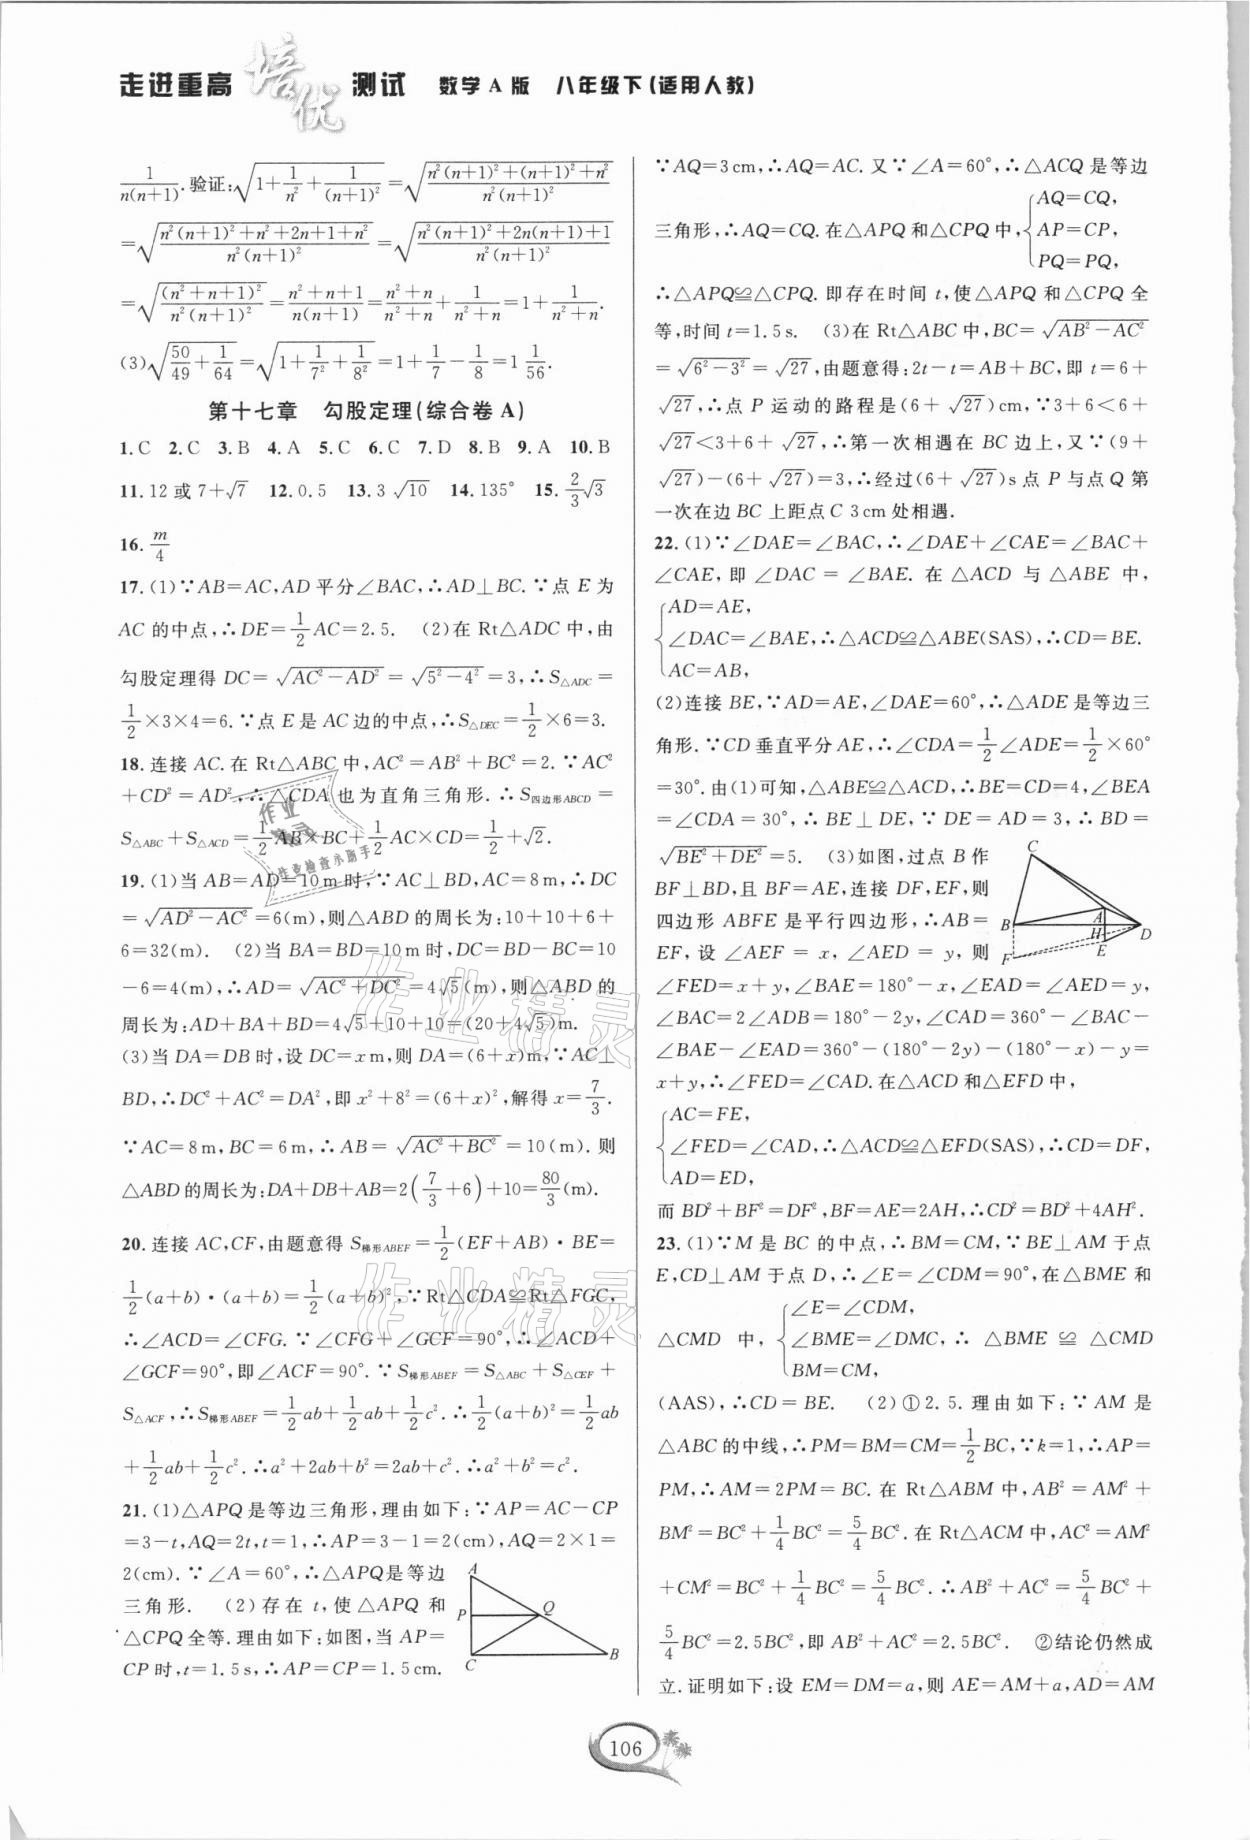 走进重高 培优 测试 数学A版 八年级下(适用人教)
1/n(n+1).验证:√(1+1/n²+1/(n+1)²)=√((n²(n+1)²+(n+1)²+n²)/(n²(n+1)²))
=√((n²(n+1)²+n²+2n+1+n²)/(n²(n+1)²))=√((n²(n+1)²+2n(n+1)+1)/(n²(n+1)²))
=√((n²+n+1)²/(n²(n+1)²))=(n²+n+1)/(n(n+1))=(n²+n)/(n²+n)+1/(n²+n)=1+1/(n²+n).
(3)√(50/49+1/64)=√(1+1/7²+1/8²)=1+1/7-1/8=1 1/56.
第十七章 勾股定理(综合卷A)
1.C 2.C 3.B 4.A 5.C 6.C 7.D 8.B 9.A 10.B
11.12或7+√7 12.0.5 13.3√10 14.135° 15.2/3√3
16.m/4
17.(1)∵AB=AC,AD平分∠BAC,∴AD⊥BC.∵点E为
AC的中点,∴DE=1/2AC=2.5. (2)在Rt△ADC中,由
勾股定理得DC=√(AC²-AD²)=√(5²-4²)=3,∴S△ADC=
1/2×3×4=6.∵点E是AC边的中点,∴S△DEC=1/2×6=3.
18.连接AC.在Rt△ABC中,AC²=AB²+BC²=2.∵AC²
+CD²=AD²,∴△CDA也为直角三角形.∴S四边形ABCD=
S△ABC+S△ACD=1/2AB×BC+1/2AC×CD=1/2+√2.
19.(1)当AB=AD=10m时,∵AC⊥BD,AC=8m,∴DC
=√(AD²-AC²)=6(m),则△ABD的周长为:10+10+6+
6=32(m). (2)当BA=BD=10m时,DC=BD-BC=10
-6=4(m),∴AD=√(AC²+DC²)=4√5(m),则△ABD的
周长为:AD+BA+BD=4√5+10+10=(20+4√5)m.
(3)当DA=DB时,设DC=xm,则DA=(6+x)m,∵AC⊥
BD,∴DC²+AC²=DA²,即x²+8²=(6+x)²,解得x=7/3.
∵AC=8m,BC=6m,∴AB=√(AC²+BC²)=10(m).则
△ABD的周长为:DA+DB+AB=2(7/3+6)+10=80/3(m).
20.连接AC,CF,由题意得S梯形ABEF=1/2(EF+AB)·BE=
1/2(a+b)·(a+b)=1/2(a+b)²,∵Rt△CDA≌Rt△FGC,
∴∠ACD=∠CFG.∵∠CFG+∠GCF=90°,∴∠ACD+
∠GCF=90°,即∠ACF=90°.∵S梯形ABEF=S△ABC+S△CEF+
S△ACF,∴S梯形ABEF=1/2ab+1/2ab+1/2c².∴1/2(a+b)²=1/2ab
+1/2ab+1/2c².∴a²+2ab+b²=2ab+c².∴a²+b²=c².
21.(1)△APQ是等边三角形,理由如下:∵AP=AC-CP
=3-t,AQ=2t,t=1,∴AP=3-1=2(cm),AQ=2×1=
2(cm).∵∠A=60°,∴△APQ是等边
三角形. (2)存在t,使△APQ和
△CPQ全等.理由如下:如图,当AP=
CP时,t=1.5s,∴AP=CP=1.5cm.
A
P
Q
C
B
∵AQ=3cm,∴AQ=AC.又∵∠A=60°,∴△ACQ是等边
三角形,∴AQ=CQ.在△APQ和△CPQ中,{AQ=CQ,
AP=CP,
PQ=PQ,
∴△APQ≌△CPQ.即存在时间t,使△APQ和△CPQ全
等,时间t=1.5s. (3)在Rt△ABC中,BC=√(AB²-AC²)
=√(6²-3²)=√27,由题意得:2t-t=AB+BC,即t=6+
√27,∴点P运动的路程是(6+√27)cm,∵3+6<6+
√27<3+6+√27,∴第一次相遇在BC边上,又∵(9+
√27)-(6+√27)=3,∴经过(6+√27)s点P与点Q第
一次在边BC上距点C 3cm处相遇.
22.(1)∵∠DAE=∠BAC,∴∠DAE+∠CAE=∠BAC+
∠CAE,即∠DAC=∠BAE.在△ACD与△ABE中,
{AD=AE,
∠DAC=∠BAE,∴△ACD≌△ABE(SAS),∴CD=BE.
AC=AB,
(2)连接BE,∵AD=AE,∠DAE=60°,∴△ADE是等边三
角形.∵CD垂直平分AE,∴∠CDA=1/2∠ADE=1/2×60°
=30°.由(1)可知,△ABE≌△ACD,∴BE=CD=4,∠BEA
=∠CDA=30°,∴BE⊥DE,∵DE=AD=3,∴BD=
√(BE²+DE²)=5. (3)如图,过点B作
BF⊥BD,且BF=AE,连接DF,EF,则
四边形ABFE是平行四边形,∴AB=
EF,设∠AEF=x,∠AED=y,则
C
B
A
H
D
F
E
∠FED=x+y,∠BAE=180°-x,∠EAD=∠AED=y,
∠BAC=2∠ADB=180°-2y,∠CAD=360°-∠BAC-
∠BAE-∠EAD=360°-(180°-2y)-(180°-x)-y=
x+y,∴∠FED=∠CAD.在△ACD和△EFD中,
{AC=FE,
∠FED=∠CAD,∴△ACD≌△EFD(SAS),∴CD=DF,
AD=ED,
而BD²+BF²=DF²,BF=AE=2AH,∴CD²=BD²+4AH².
23.(1)∵M是BC的中点,∴BM=CM,∵BE⊥AM于点
E,CD⊥AM于点D,∴∠E=∠CDM=90°,在△BME和
△CMD中,{∠E=∠CDM,
∠BME=∠DMC,∴△BME≌△CMD
BM=CM,
(AAS),∴CD=BE. (2)①2.5.理由如下:∵AM是
△ABC的中线,∴PM=BM=CM=1/2BC,∵k=1,∴AP=
PM,∴AM=2PM=BC.在Rt△ABM中,AB²=AM²+
BM²=BC²+1/4BC²=5/4BC².在Rt△ACM中,AC²=AM²
+CM²=BC²+1/4BC²=5/4BC².∴AB²+AC²=5/4BC²+
5/4BC²=2.5BC²,即AB²+AC²=2.5BC². ②结论仍然成
立.证明如下:设EM=DM=a,则AE=AM+a,AD=AM
106
作业精灵
作业精灵
作业
作业检查小助手